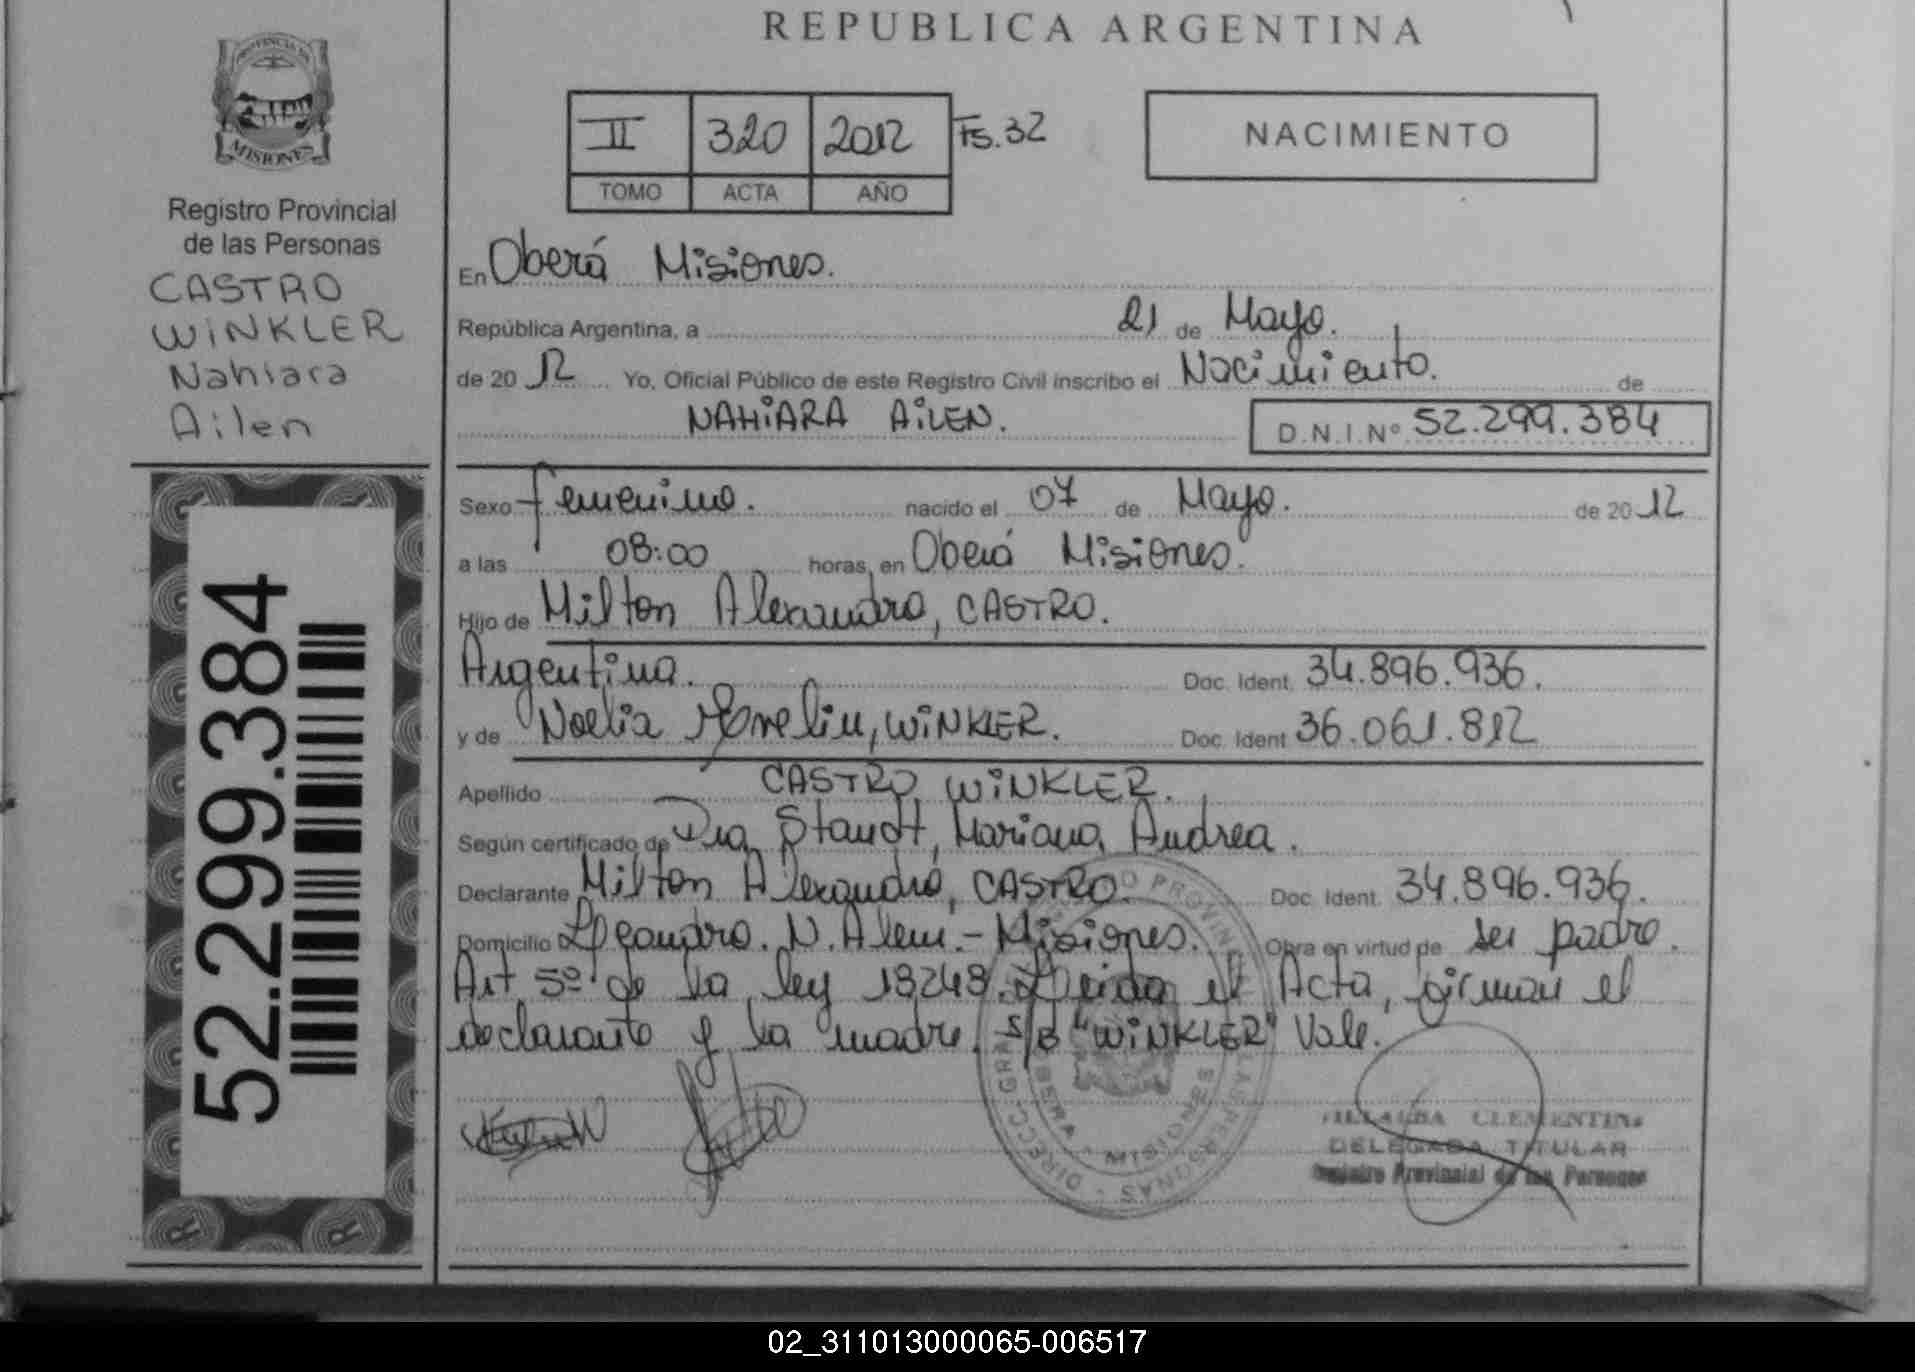 REPUBLICA ARGENTINA
PROVINCIA DE
MISIONES
Registro Provincial
de las Personas
CASTRO
WINKLER
Nahiara
Ailen
52.299.384
II 320 2012 Fs. 32
TOMO ACTA AÑO
NACIMIENTO
En Oberá Misiones.
República Argentina, a 21 de Mayo.
de 2012 Yo, Oficial Público de este Registro Civil inscribo el Nacimiento. de
NAHIARA AILEN. D.N.I.Nº 52.299.384
Sexo femenino. nacido el 07 de Mayo. de 2012
a las 08:00 horas, en Oberá Misiones.
Hijo de Milton Alexandro, CASTRO.
Argentina. Doc. Ident. 34.896.936.
y de Noelia WINKLER. Doc. Ident 36.061.812
Apellido CASTRO WINKLER.
Según certificado de Dra Staudt, Mariana Andrea.
Declarante Milton Alexandro, CASTRO. Doc. Ident. 34.896.936.
Domicilio Leandro. N. Alem. - Misiones. Obra en virtud de ser padre.
Art 5º de la ley 18248. Leida el Acta, firman el
declarante y la madre. S/B "WINKLER" Vale.
VILLALBA CLEMENTINA
DELEGADA TITULAR
Registro Provincial de las Personas
OBERA - MISIONES
02_311013000065-006517